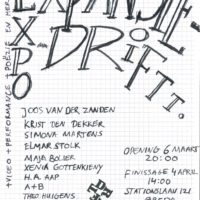 EXPANSIE-
EXPO
-DRIFT!.
+VIDEO+PERFORMANCE+POËZIE EN MER
JOOS VAN DER ZANDEN
KRIST TEN DEKKER
SIMONA MARTENS
ELMAR STOLK
MAJA BOLIER
XENIA GOTTENKIENY
H.A. AAP
A+B
THEO HUIGENS
OPENING 6 MAART
20:00
FINISSAGE 4 APRIL
14:00
STATIONSLAAN 121
BREDA